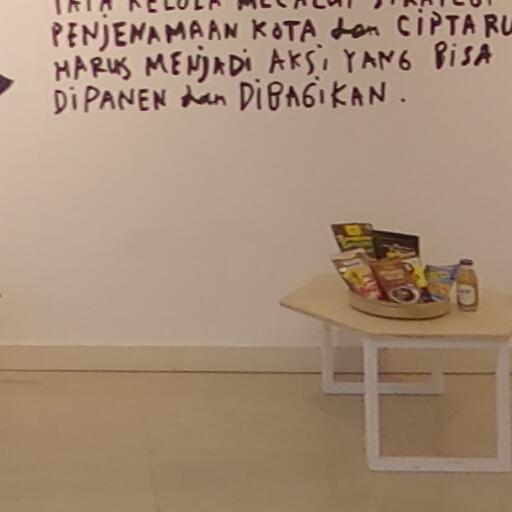 TATA KELOLA MELALUI STRATEGI
PENJENAMAAN KOTA dan CIPTARU
HARUS MENJADI AKSI YANG BISA
DIPANEN dan DIBAGIKAN.